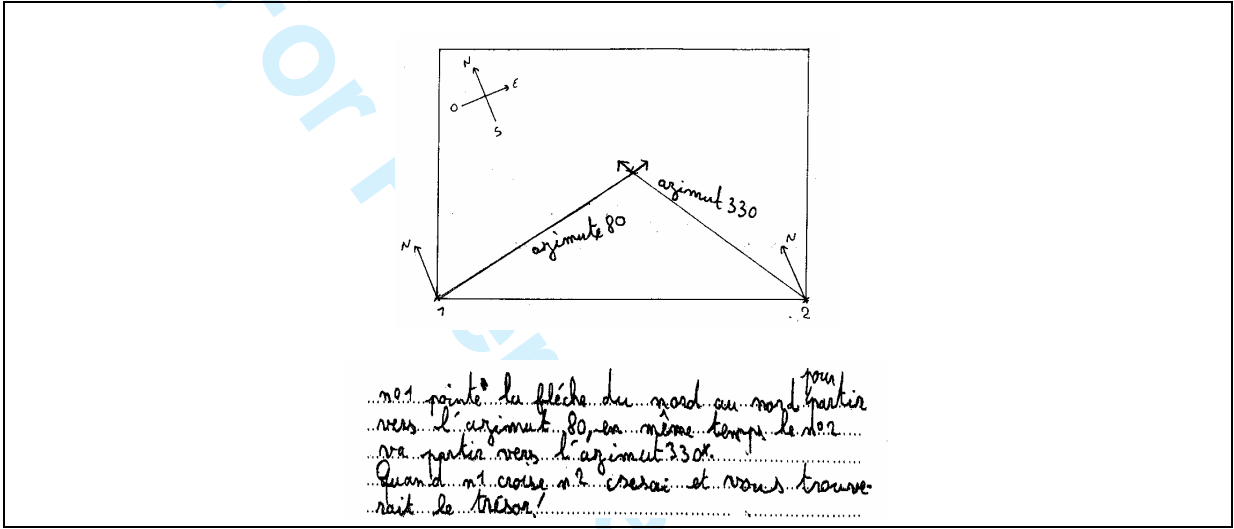 N
E
O
S
azimut 330
azimute 80
N
N
1
2
pour
n°1 pointe la flèche du nord au nord partir
vers l'azimut 80, en même temps le n°2
va partir vers l'azimut 330.
Quand n°1 croise n°2 csesai et vous trouve-
rait le trésor!